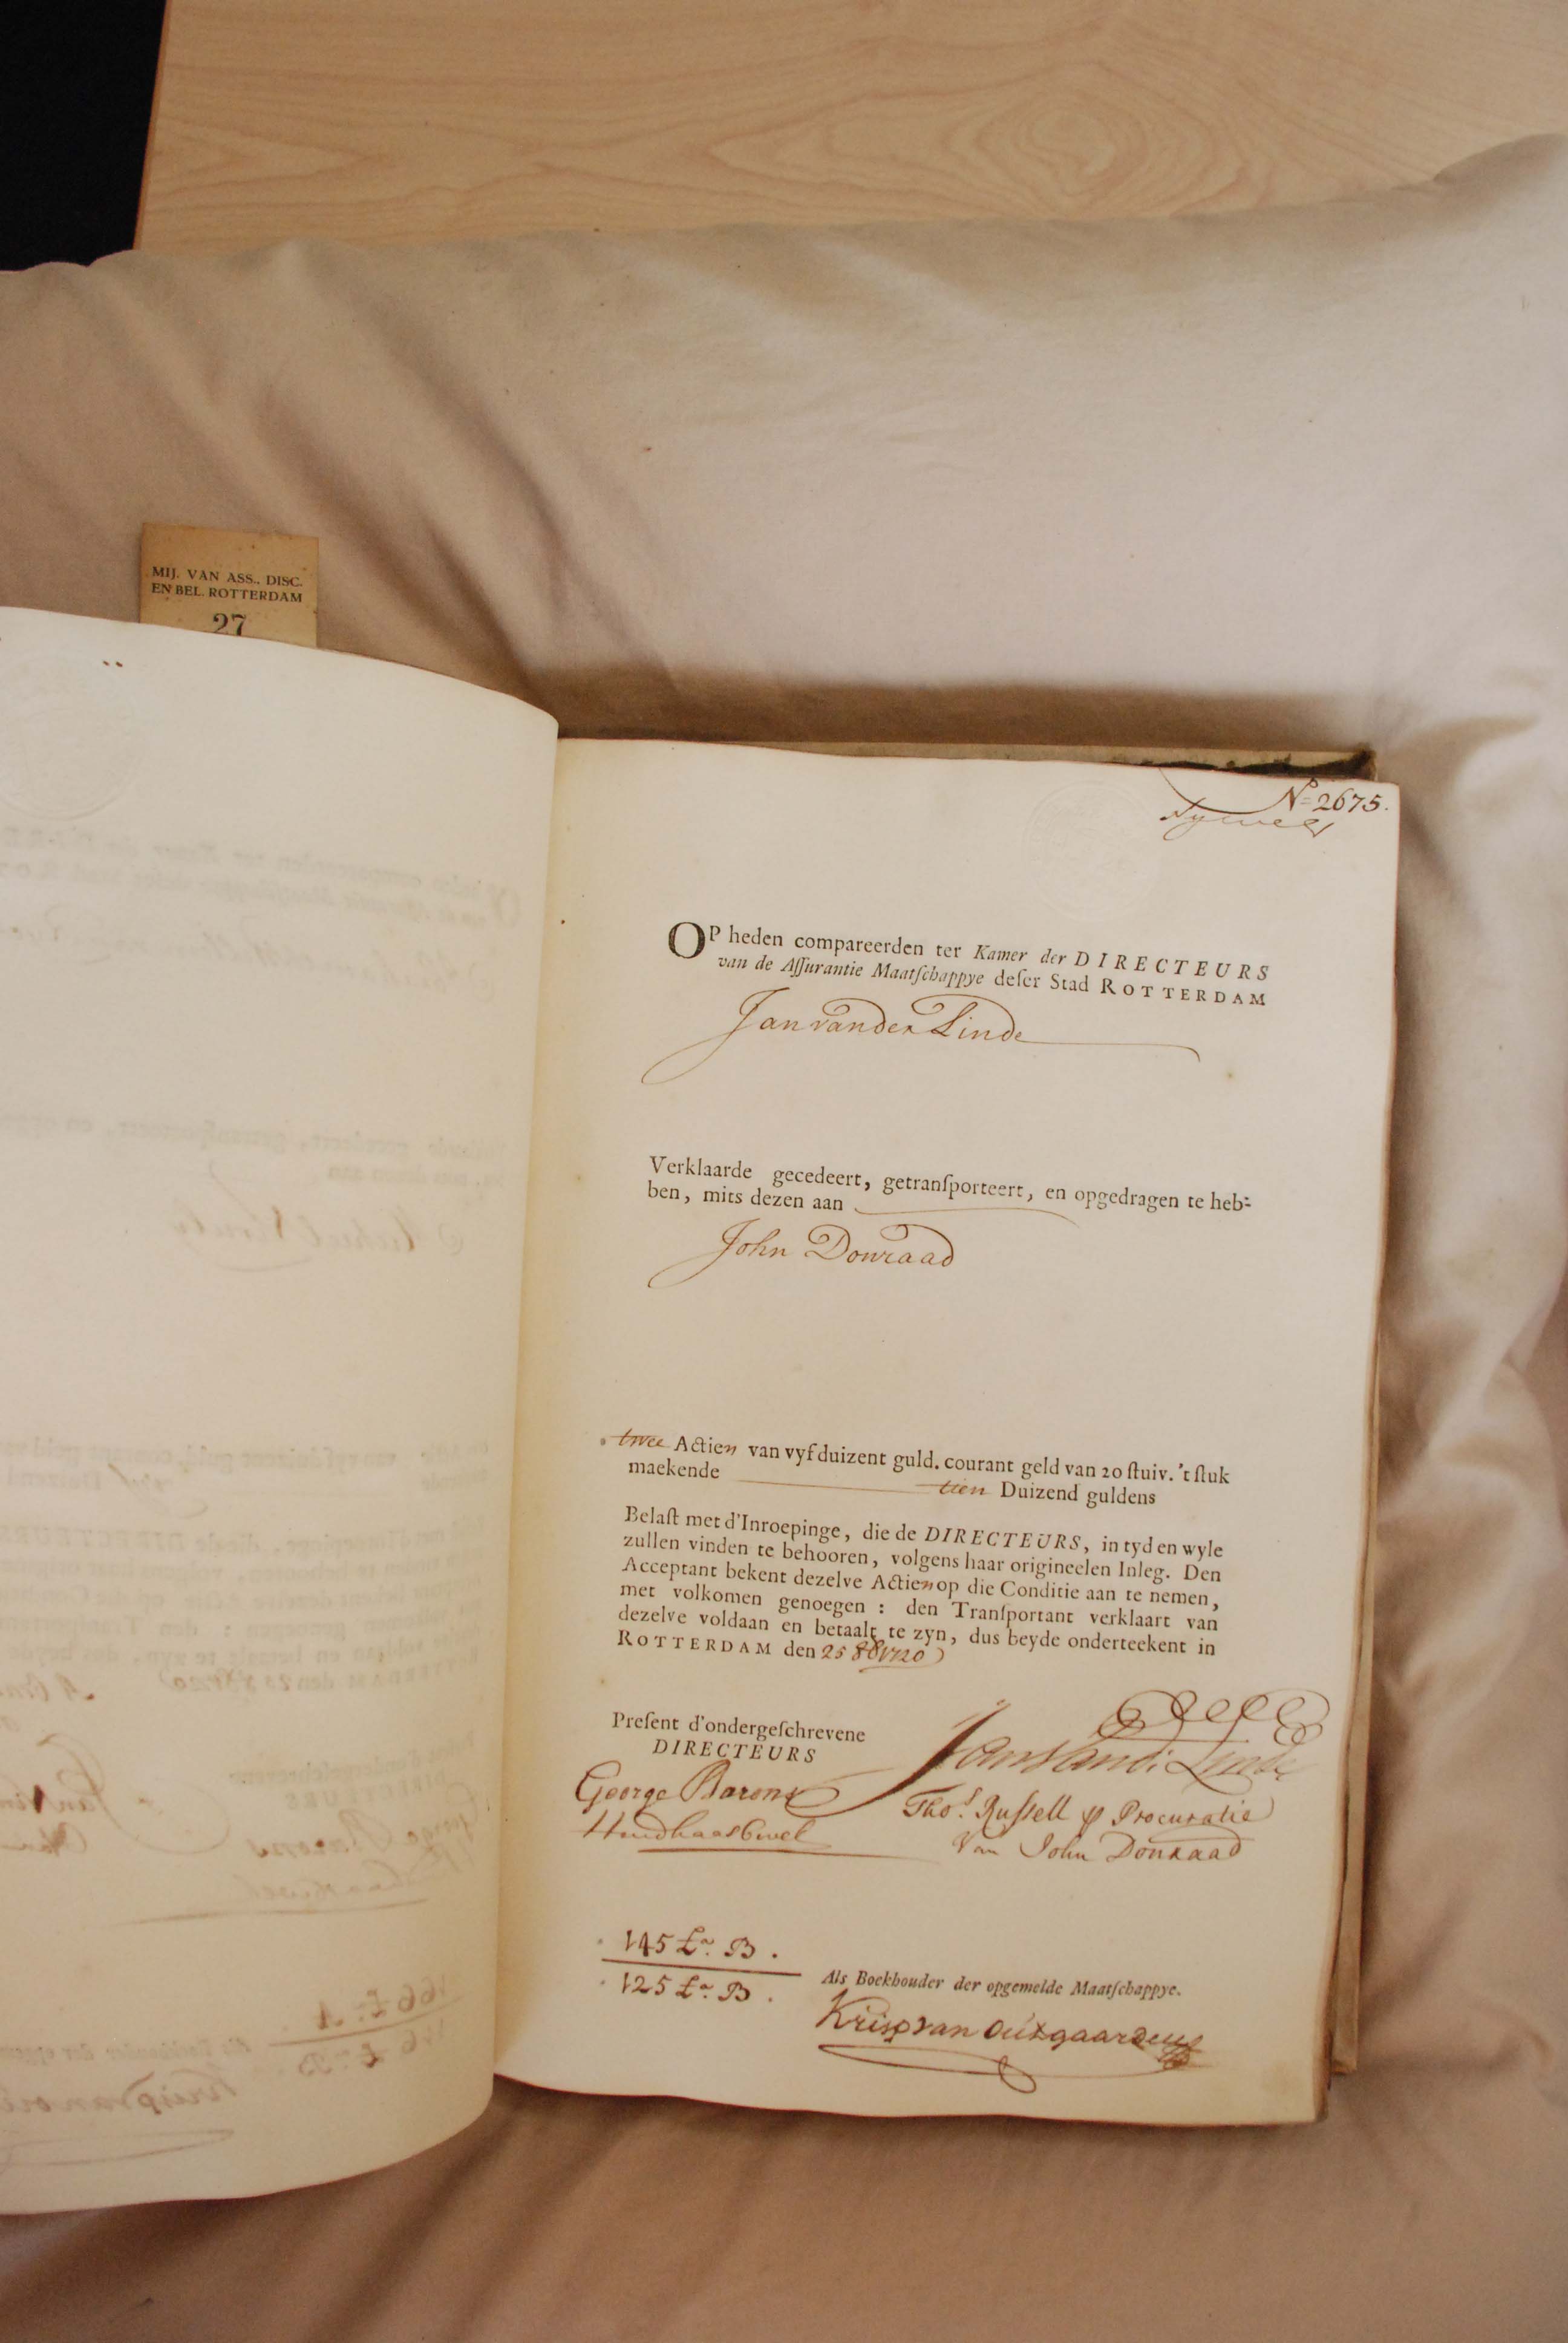 MIJ. VAN ASS., DISC.
EN BEL. ROTTERDAM
27
No 2675.
OP heden compareerden ter Kamer der DIRECTEURS
van de Aſſurantie Maatſchappye deſer Stad ROTTERDAM
Jan van der Linde
Verklaarde gecedeert, getranſporteert, en opgedragen te heb-
ben, mits dezen aan
John Donraad
twee Actien van vyf duizent guld. courant geld van 20 ſtuiv. 't ſtuk
maekende tien Duizend guldens
Belaſt met d'Inroepinge, die de DIRECTEURS, in tyd en wyle
zullen vinden te behooren, volgens haar origineelen Inleg. Den
Acceptant bekent dezelve Actien op die Conditie aan te nemen,
met volkomen genoegen : den Tranſportant verklaart van
dezelve voldaan en betaalt te zyn, dus beyde onderteekent in
ROTTERDAM den 25 8b 1720
Preſent d'ondergeſchrevene
DIRECTEURS
Jan Vande Linde
George Barons
Thos. Ruſsell p Procuratie
Van John Donraad
145 Lra. B.
125 Lra. B.
Als Boekhouder der opgemelde Maatſchappye.
Krisp van Outgaarden